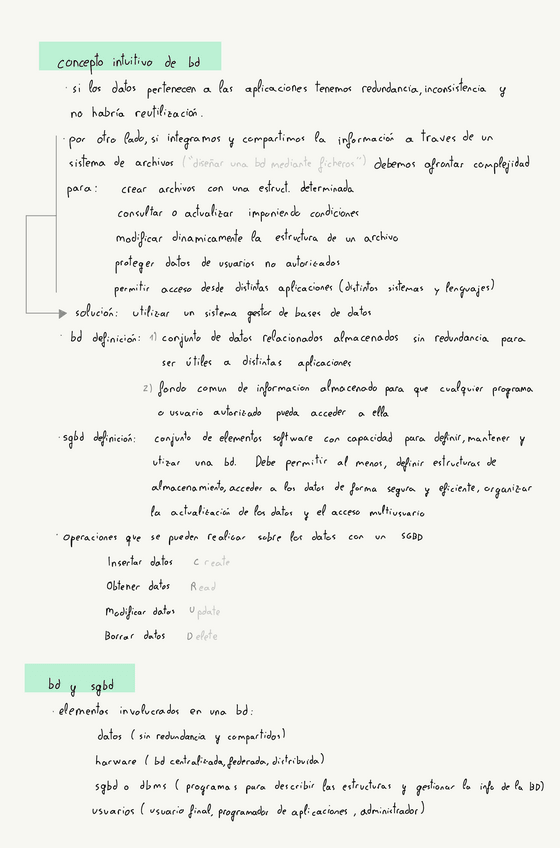 concepto intuitivo de bd
· si los datos pertenecen a las aplicaciones tenemos redundancia, inconsistencia y
no habría reutilización.
· por otro lado, si integramos y compartimos la información a traves de un
sistema de archivos ("diseñar una bd mediante ficheros") debemos afrontar complejidad
para: crear archivos con una estruct. determinada
consultar o actualizar imponiendo condiciones
modificar dinamicamente la estructura de un archivo
proteger datos de usuarios no autorizados
permitir acceso desde distintas aplicaciones (distintos sistemas y lenguajes)
solución: utilizar un sistema gestor de bases de datos
· bd definición: 1) conjunto de datos relacionados almacenados sin redundancia para
ser útiles a distintas aplicaciones
2) fondo comun de informacion almacenado para que cualquier programa
o usuario autorizado pueda acceder a ella
· sgbd definición: conjunto de elementos software con capacidad para definir, mantener y
utizar una bd. Debe permitir al menos, definir estructuras de
almacenamiento, acceder a los datos de forma segura y eficiente, organizar
la actualización de los datos y el acceso multiusuario
· Operaciones que se pueden realizar sobre los datos con un SGBD
Insertar datos Create
Obtener datos Read
Modificar datos Update
Borrar datos Delete
bd y sgbd
· elementos involucrados en una bd:
datos (sin redundancia y compartidos)
harware (bd centralizada, federada, distribuida)
sgbd o dbms (programas para describir las estructuras y gestionar la info de la BD)
usuarios (usuario final, programador de aplicaciones, administrador)